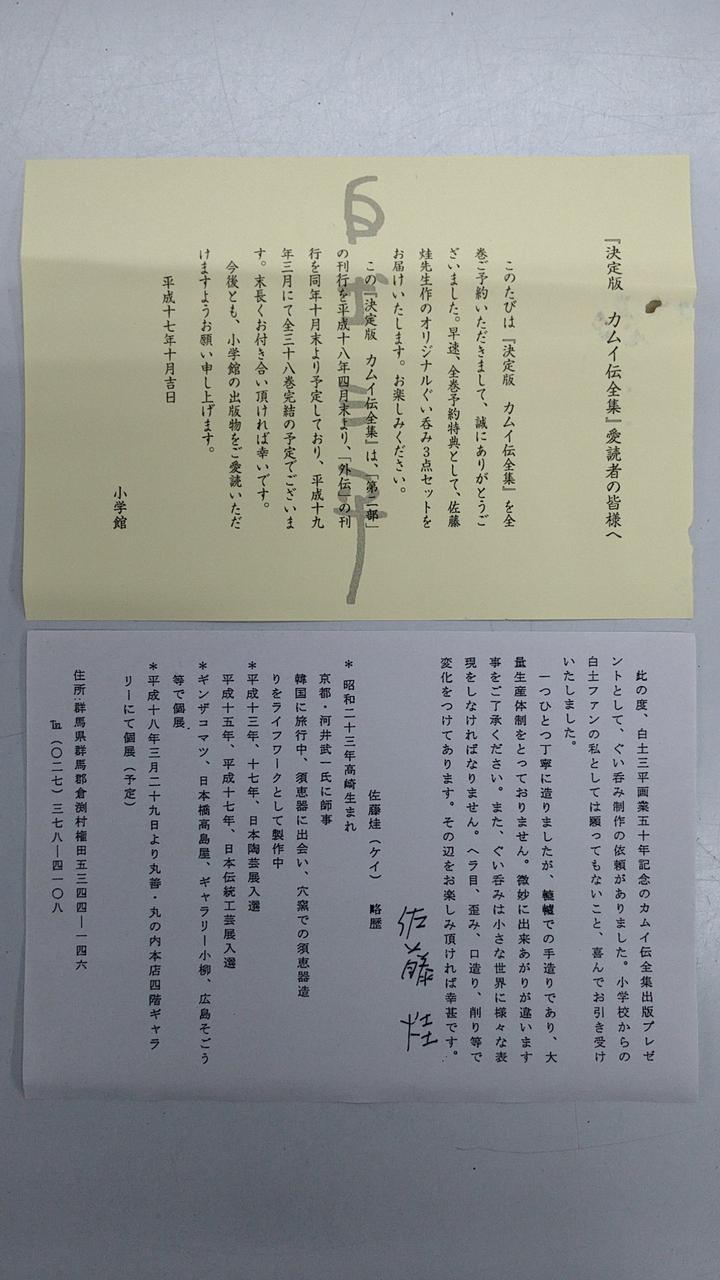 『決定版　カムイ伝全集』愛読者の皆様へ
このたびは『決定版　カムイ伝全集』を全
巻ご予約いただきまして、誠にありがとうご
ざいました。早速、全巻予約特典として、佐藤
烓先生作のオリジナルぐい呑み３点セットを
お届けいたします。お楽しみください。
この『決定版　カムイ伝全集』は、「第二部」
の刊行を平成十八年四月末より、「外伝」の刊
行を同年十月末より予定しており、平成十九
年三月にて全三十八巻完結の予定でございま
す。末長くお付き合い頂ければ幸いです。
今後とも、小学館の出版物をご愛読いただ
けますようお願い申し上げます。
平成十七年十月吉日
小学館
白土三平
此の度、白土三平画業五十年記念のカムイ伝全集出版プレゼ
ントとして、ぐい呑み制作の依頼がありました。小学校からの
白土ファンの私としては願ってもないこと、喜んでお引き受け
いたしました。
一つひとつ丁寧に造りましたが、轆轤での手造りであり、大
量生産体制をとっておりません。微妙に出来あがりが違います
事をご了承ください。また、ぐい呑みは小さな世界に様々な表
現をしなければなりません。ヘラ目、歪み、口造り、削り等で
変化をつけてあります。その辺をお楽しみ頂ければ幸甚です。
佐藤　烓
佐藤烓（ケイ）　略歴
＊昭和二十三年高崎生まれ
京都・河井武一氏に師事
韓国に旅行中、須恵器に出会い、穴窯での須恵器造
りをライフワークとして製作中
＊平成十三年、十七年、日本陶芸展入選
平成十五年、平成十七年、日本伝統工芸展入選
＊ギンザコマツ、日本橋高島屋、ギャラリー小柳、広島そごう
等で個展
＊平成十八年三月二十九日より丸善・丸の内本店四階ギャラ
リーにて個展（予定）
住所：群馬県群馬郡倉渕村権田五三四四―一四六
℡（〇二七）三七八―四一〇八